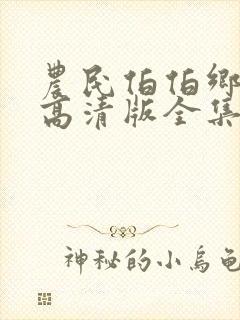 農民伯伯鄉
高清版全集
神秘的小烏龜